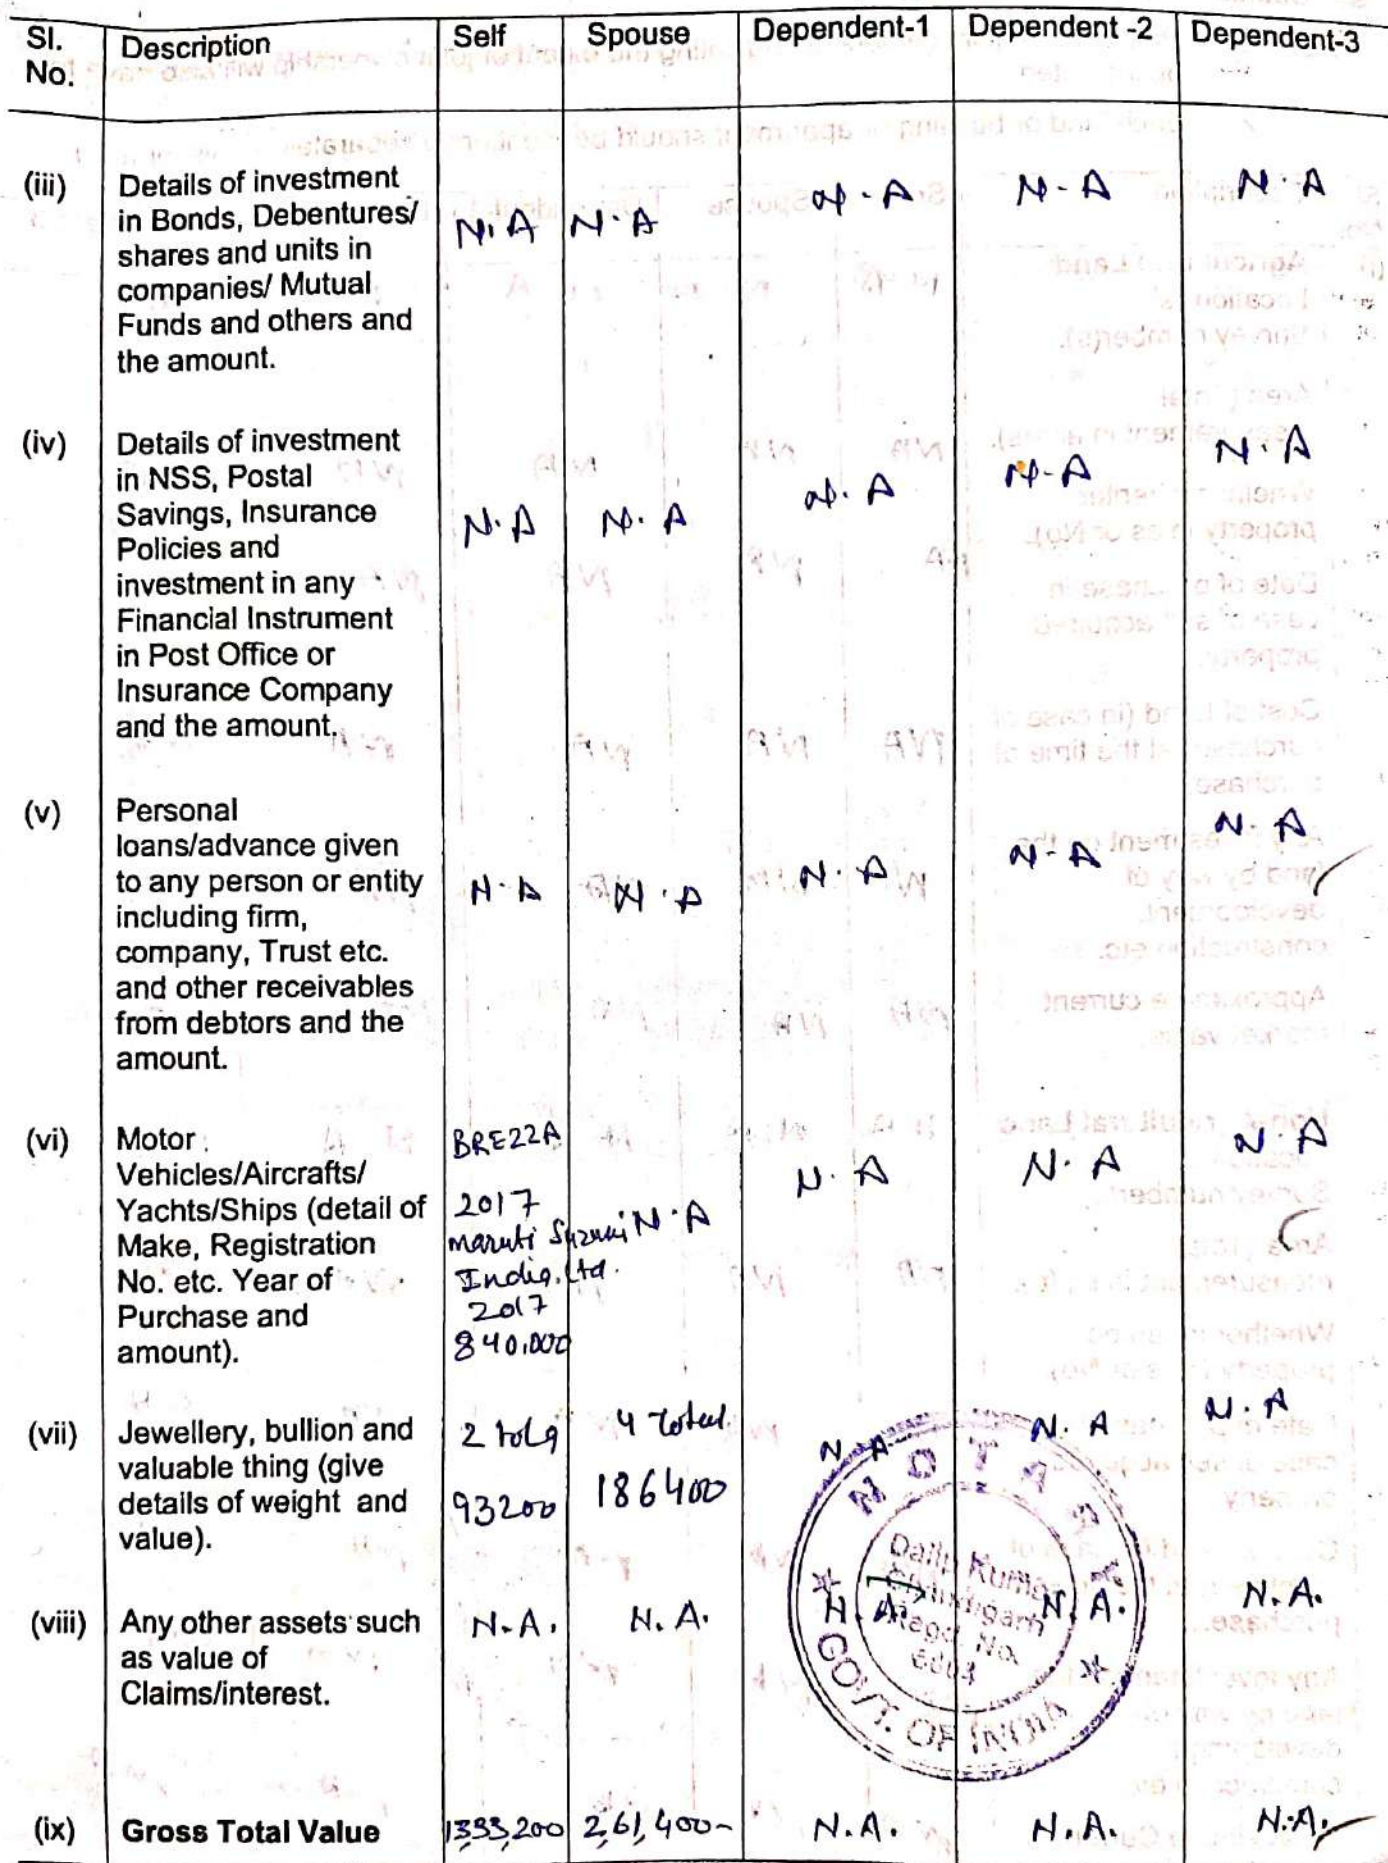 Sl. No. Description Self Spouse Dependent-1 Dependent -2 Dependent-3
(iii) Details of investment in Bonds, Debentures/ shares and units in companies/ Mutual Funds and others and the amount. N.A N.A N.A N-A N.A
(iv) Details of investment in NSS, Postal Savings, Insurance Policies and investment in any Financial Instrument in Post Office or Insurance Company and the amount. N.A N.A N.A N-A N.A
(v) Personal loans/advance given to any person or entity including firm, company, Trust etc. and other receivables from debtors and the amount. N.A N.A N.A N-A N.A
(vi) Motor Vehicles/Aircrafts/ Yachts/Ships (detail of Make, Registration No. etc. Year of Purchase and amount). BREZZA 2017 Maruti Suzuki India Ltd. 2017 840,000 N.A N.A N.A N.A
(vii) Jewellery, bullion and valuable thing (give details of weight and value). 2 tola 93200 4 186400 N.A N.A N.A
(viii) Any other assets such as value of Claims/interest. N.A. N.A. N.A. N.A. N.A.
NOTARY
Chandigarh
Regd. No.
GOVT. OF INDIA
(ix) Gross Total Value 2,61,400- N.A. N.A. N.A.